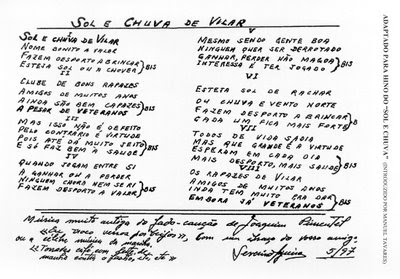 SOL E CHUVA DE VILAR
I
SOL E CHUVA DE VILAR
NOME BONITO A VALER
FAZEM DESPORTO A BRINCAR
ESTEJA SOL OU A CHOVER } BIS
II
CLUBE DE BONS RAPAZES
AMIGOS DE MUITOS ANOS
AINDA SÃO BEM CAPAZES
A PESAR DE VETERANOS } BIS
III
MAS ISSO NÃO É DEFEITO
PELO CONTRÁRIO É VIRTUDE
POIS ATÉ DÁ MUITO JEITO
E SÓ FAZ BEM À SAÚDE } BIS
IV
QUANDO JOGAM ENTRE SI
A GANHAR OU A PERDER
NINGUEM CHORA NEM SE RI
FAZEM DESPORTO A VALER } BIS
V
MESMO SENDO GENTE BOA
NINGUEM QUER SER DERROTADO
GANHAR, PERDER NÃO MAGOA
INTERESSA É TER JOGADO } BIS
VI
ESTEJA SOL DE RACHAR
OU CHUVA E VENTO NORTE
FAZEM DESPORTO A BRINCAR
CADA UM FICA MAIS FORTE } BIS
VII
TODOS DE VIDA SADIA
MAS QUE GRANDE É A VIRTUDE
ESPEREM EM CADA DIA
MAIS DESPORTO, MAIS SAÚDE } BIS
VIII
OS RAPAZES DE VILAR
AMIGOS DE MUITOS ANOS
INDA TEM MUITO PRA DAR
EMBORA SÁ VETERANOS } BIS
Música muito antiga do fado-canção de Joaquim Pimentel
voces beijos», Com um abraço do vosso amigo
ou a música da marcha
5/97
ADAPTADO PARA HINO DO "SOL E CHUVA" (INTRODUZIDO POR MANUEL TAVARES)